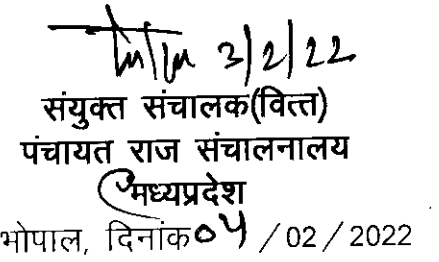 3/2/22
संयुक्त संचालक(वित्त)
पंचायत राज संचालनालय
मध्यप्रदेश
भोपाल, दिनांक 04 / 02 / 2022